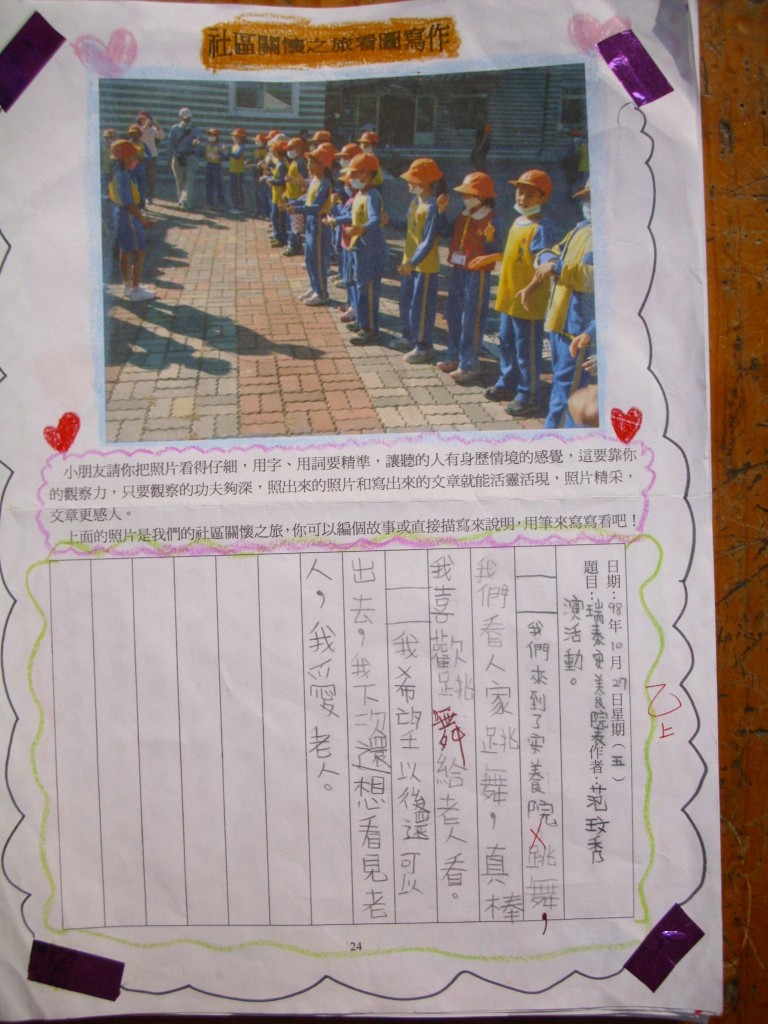 社區關懷之旅看圖寫作
小朋友請你把照片看得仔細，用字、用詞要精準，讓聽的人有身歷情境的感覺，這要靠你
的觀察力，只要觀察的功夫夠深，照出來的照片和寫出來的文章就能活靈活現，照片精采，
文章更感人。
上面的照片是我們的社區關懷之旅，你可以編個故事或直接描寫來說明，用筆來寫寫看吧！
日期：98年10月27日星期（五）
題目：瑞泰安美院表作者：范玟秀
演活動。
我們來到了安養院跳舞，
我們看人家跳舞，真棒
我喜歡跳舞給老人看。
我希望以後還可以
出去，我下次還想看見老
人，我愛老人。
乙上
24